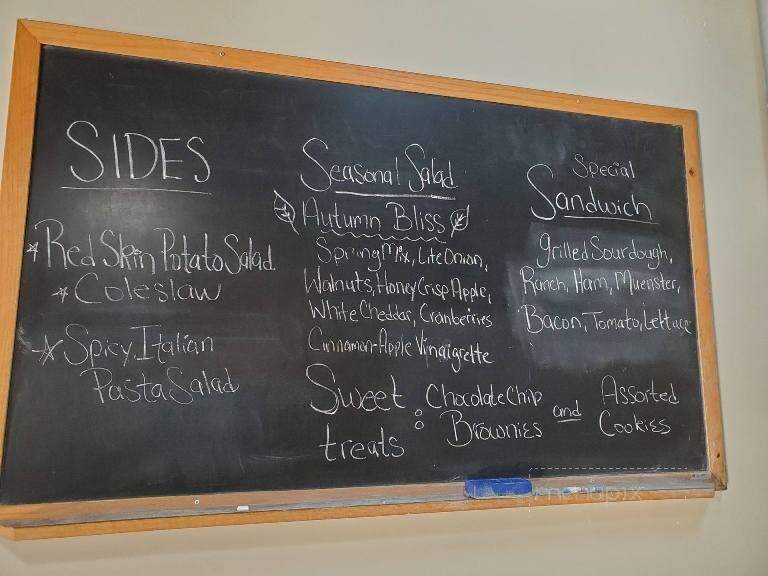 SIDES
Red Skin Potato Salad
Coleslaw
Spicy Italian
Pasta Salad
Seasonal Salad
Autumn Bliss
Spring Mix, Lite Onion,
Walnuts, Honey Crisp Apple,
White Cheddar, Cranberries
Cinnamon-Apple Vinaigrette
Special
Sandwich
Grilled Sourdough,
Ranch, Ham, Muenster,
Bacon, Tomato, Lettuce
Sweet
treats :
Chocolate Chip
Brownies
and
Assorted
Cookies
menupix